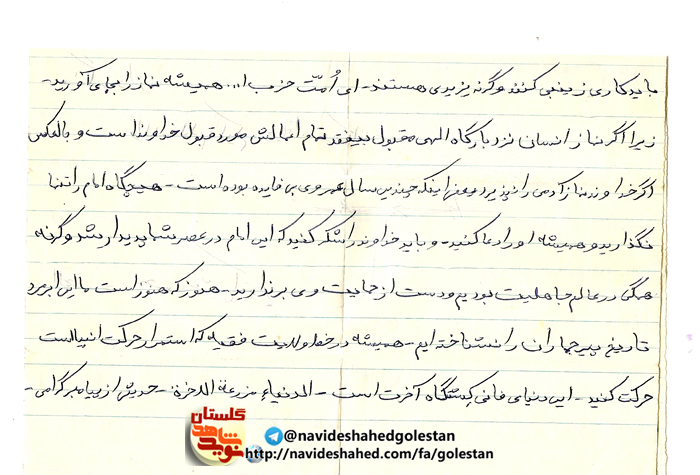 باید کاری زینبی کنند وگرنه یزیدی هستند - ای اُمّت حزب ا... همیشه نماز را بجای آورید -
زیرا اگر نماز انسان نزد بارگاه الهی مقبول بیفتد تمام اعمالش مورد قبول خداوند است و بالعکس
اگر خداوند نماز آدمی را نپذیرد یعنی اینکه چندین سال عمر وی بی فایده بوده است - هیچگاه امام را تنها
نگذارید و همیشه او را دعا کنید - و باید خداوند را شکر کنید که این امام در عصر شما پدیدار شد وگرنه
همگی در عالم جاهلیت بودیم و دست از حمایت وی برندارید - هنوز که هنوز است ما این ابرمرد
تاریخ پیر جماران را نشناخته ایم - همیشه در خط ولایت فقیه که استمرار حرکت انبیاست
حرکت کنید - این دنیای فانی کشتگاه آخرت است - الدنیاء مزرعة الاخرة - حدیثی از پیامبر گرامی -
گلستان
نوید شاهد
@navideshahedgolestan
http://navideshahed.com/fa/golestan